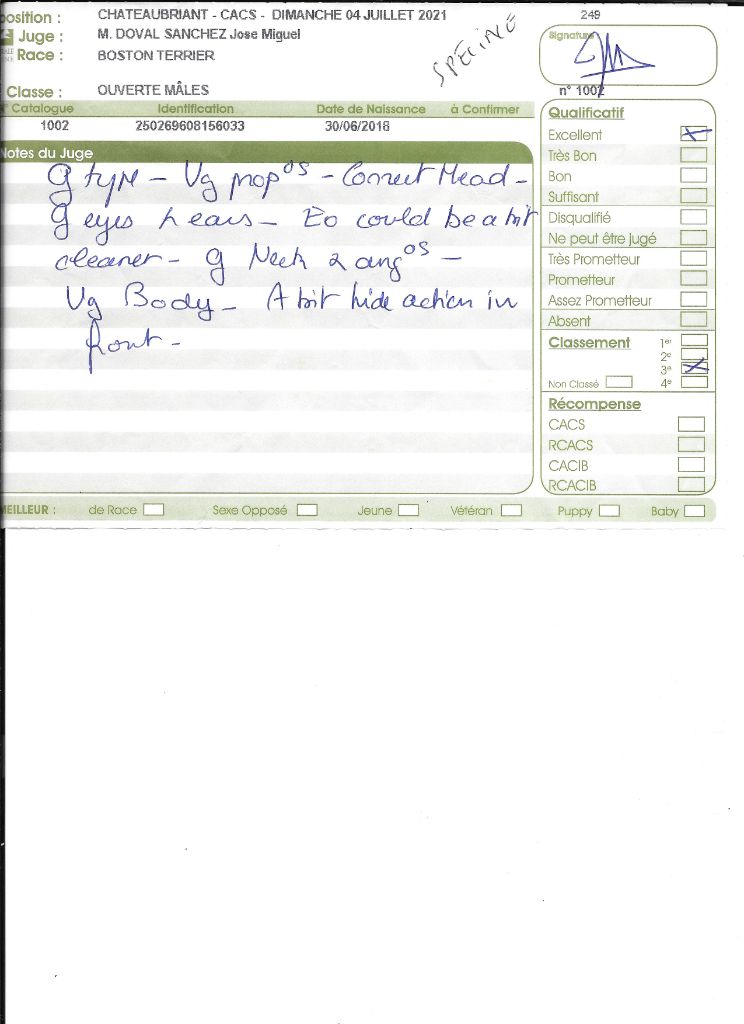 position : CHATEAUBRIANT - CACS - DIMANCHE 04 JUILLET 2021 249
Juge : M. DOVAL SANCHEZ Jose Miguel
Race : BOSTON TERRIER
SPÉCIALE
Signature
Classe : OUVERTE MÂLES n° 1002
Catalogue Identification Date de Naissance à Confirmer
1002 250269608156033 30/06/2018
Notes du Juge
G type - Vg prop os - Correct Head -
G eyes & ears - Eo could be a bit
cleaner - g Neck & ang os -
Vg Body - A bit hide action in
front -
Qualificatif
Excellent
Très Bon
Bon
Suffisant
Disqualifié
Ne peut être jugé
Très Prometteur
Prometteur
Assez Prometteur
Absent
Classement 1er
2e
3e
Non Classé 4e
Récompense
CACS
RCACS
CACIB
RCACIB
MEILLEUR : de Race Sexe Opposé Jeune Vétéran Puppy Baby